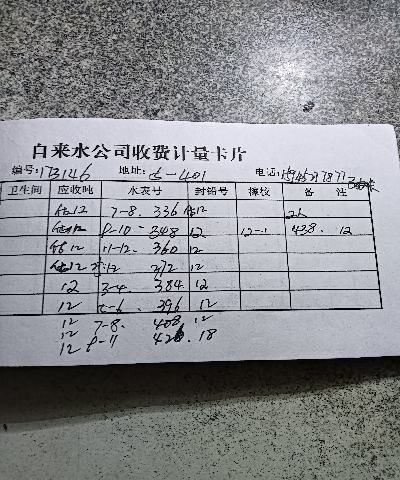 自来水公司收费计量卡片
编号:173146 地址: 6-401 电话:
卫生间 应收吨 水表号 封铅号 稼妏 备 注
估12 7-8. 336 估12
估12 9-10- 348 12 12-1 438. 12
估12 11-12- 360 12
估12 372 12
12 3-4. 384 12
12 5-6. 396 12
12 7-8. 408 12
12 9-11 426. 18